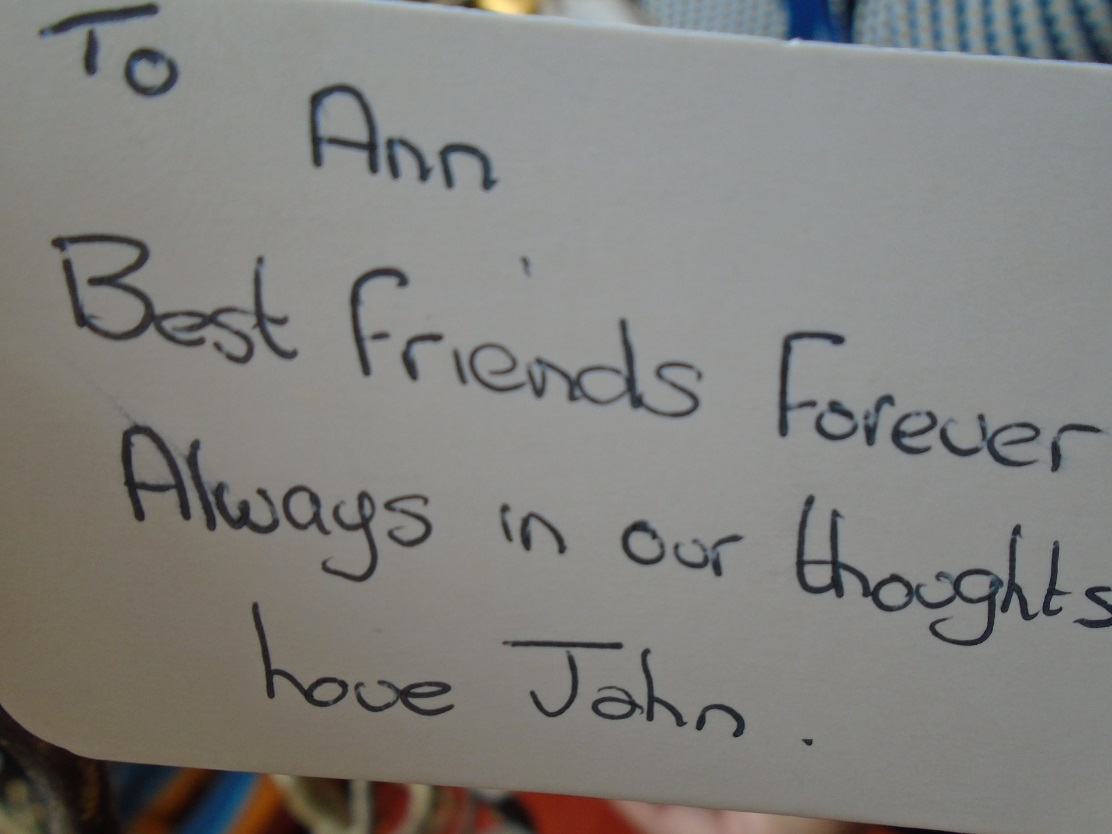 To
Ann
Best Friends Forever
Always in our thoughts
Love John.